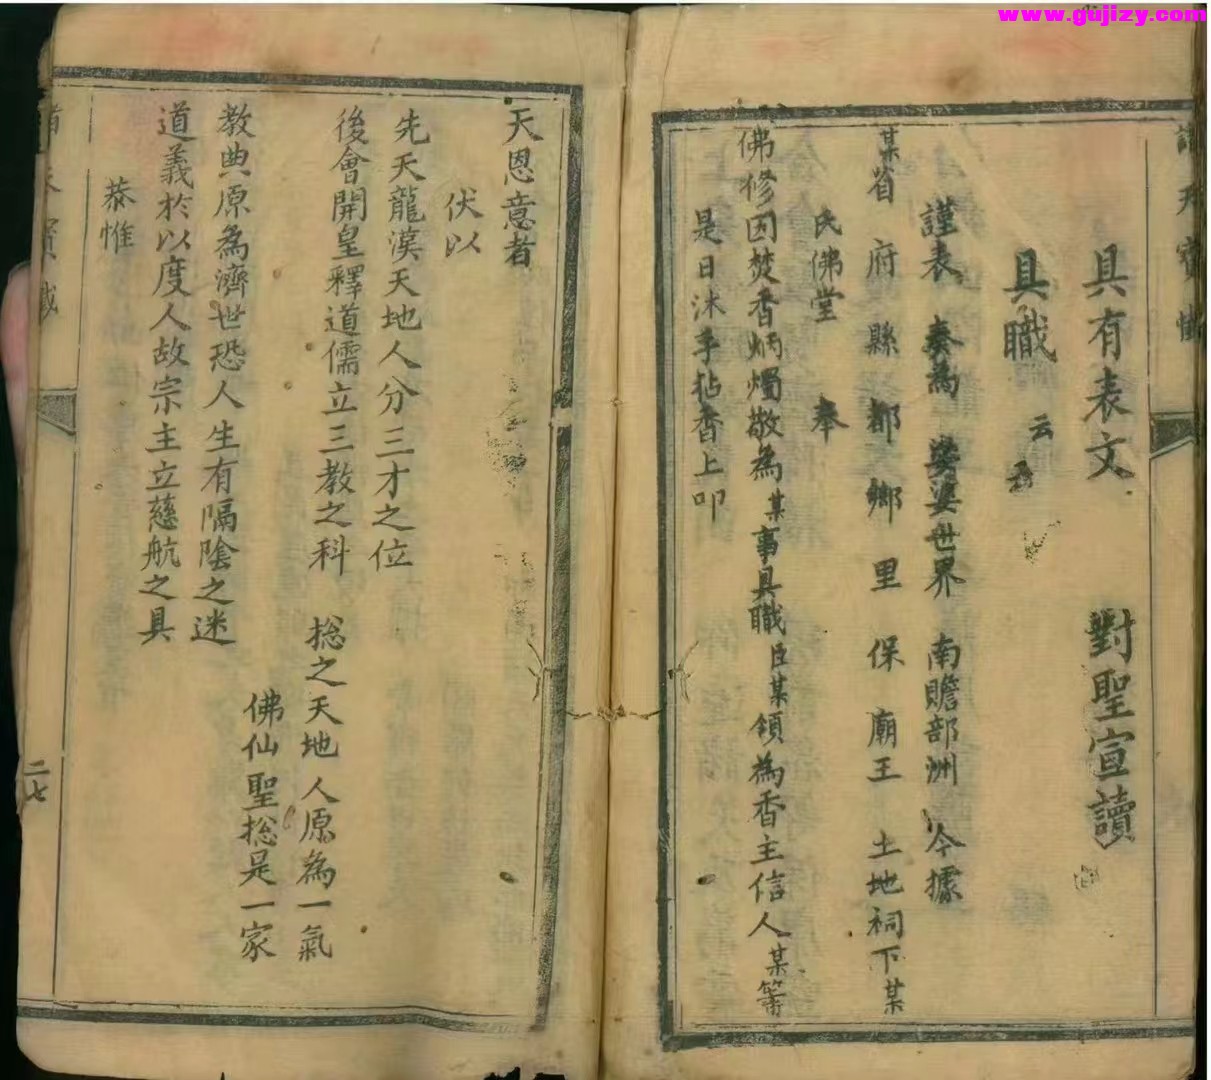 www.gujizy.com
具有表文　對聖宣讀
具職　云　云
謹表　奏為　娑婆世界　南贍部洲　今據
某省　府　縣　都　鄉　里　保　廟王　土地祠下某
氏佛堂　奉
佛修因焚香炳燭敬為某事具職臣某領為香主信人某等
是日沐手拈香上叩
天恩意者
伏以
先天龍漠天地人分三才之位
後會開皇釋道儒立三教之科
捴之天地人原為一氣
佛仙聖捴是一家
教典原為濟世恐人生有隔陰之迷
道義於以度人故宗主立慈航之具
恭惟
二七